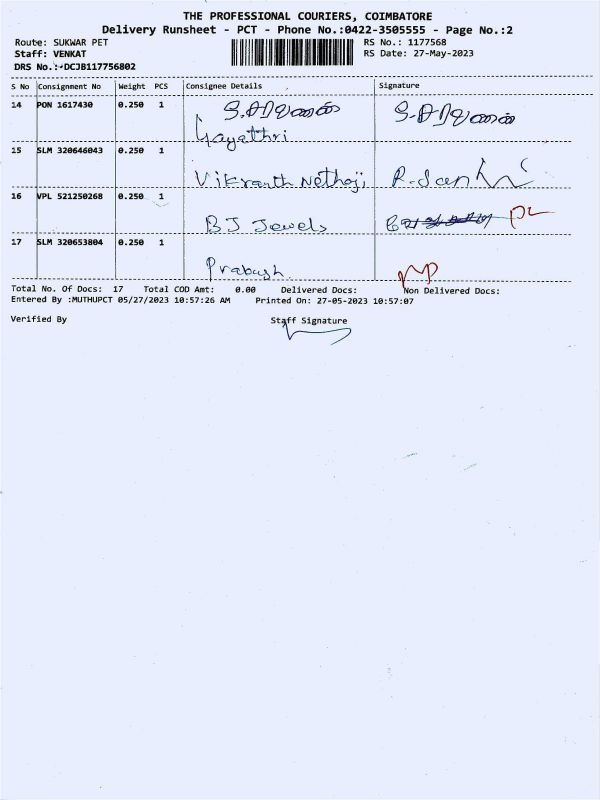 THE PROFESSIONAL COURIERS, COIMBATORE
Delivery Runsheet - PCT - Phone No.:0422-3505555 - Page No.:2
Route: SUKWAR PET RS No.: 1177568
Staff: VENKAT RS Date: 27-May-2023
DRS No.:-DCJB117756802
S No Consignment No Weight PCS Consignee Details Signature
14 PON 1617430 0.250 1
Gayathri
15 SLM 320646043 0.250 1
Vikranth Nethoji
16 VPL 521250268 0.250 1
BJ Jewels
17 SLM 320653804 0.250 1
Prabash
Total No. Of Docs: 17 Total COD Amt: 0.00 Delivered Docs: Non Delivered Docs:
Entered By :MUTHUPCT 05/27/2023 10:57:26 AM Printed On: 27-05-2023 10:57:07
Verified By Staff Signature